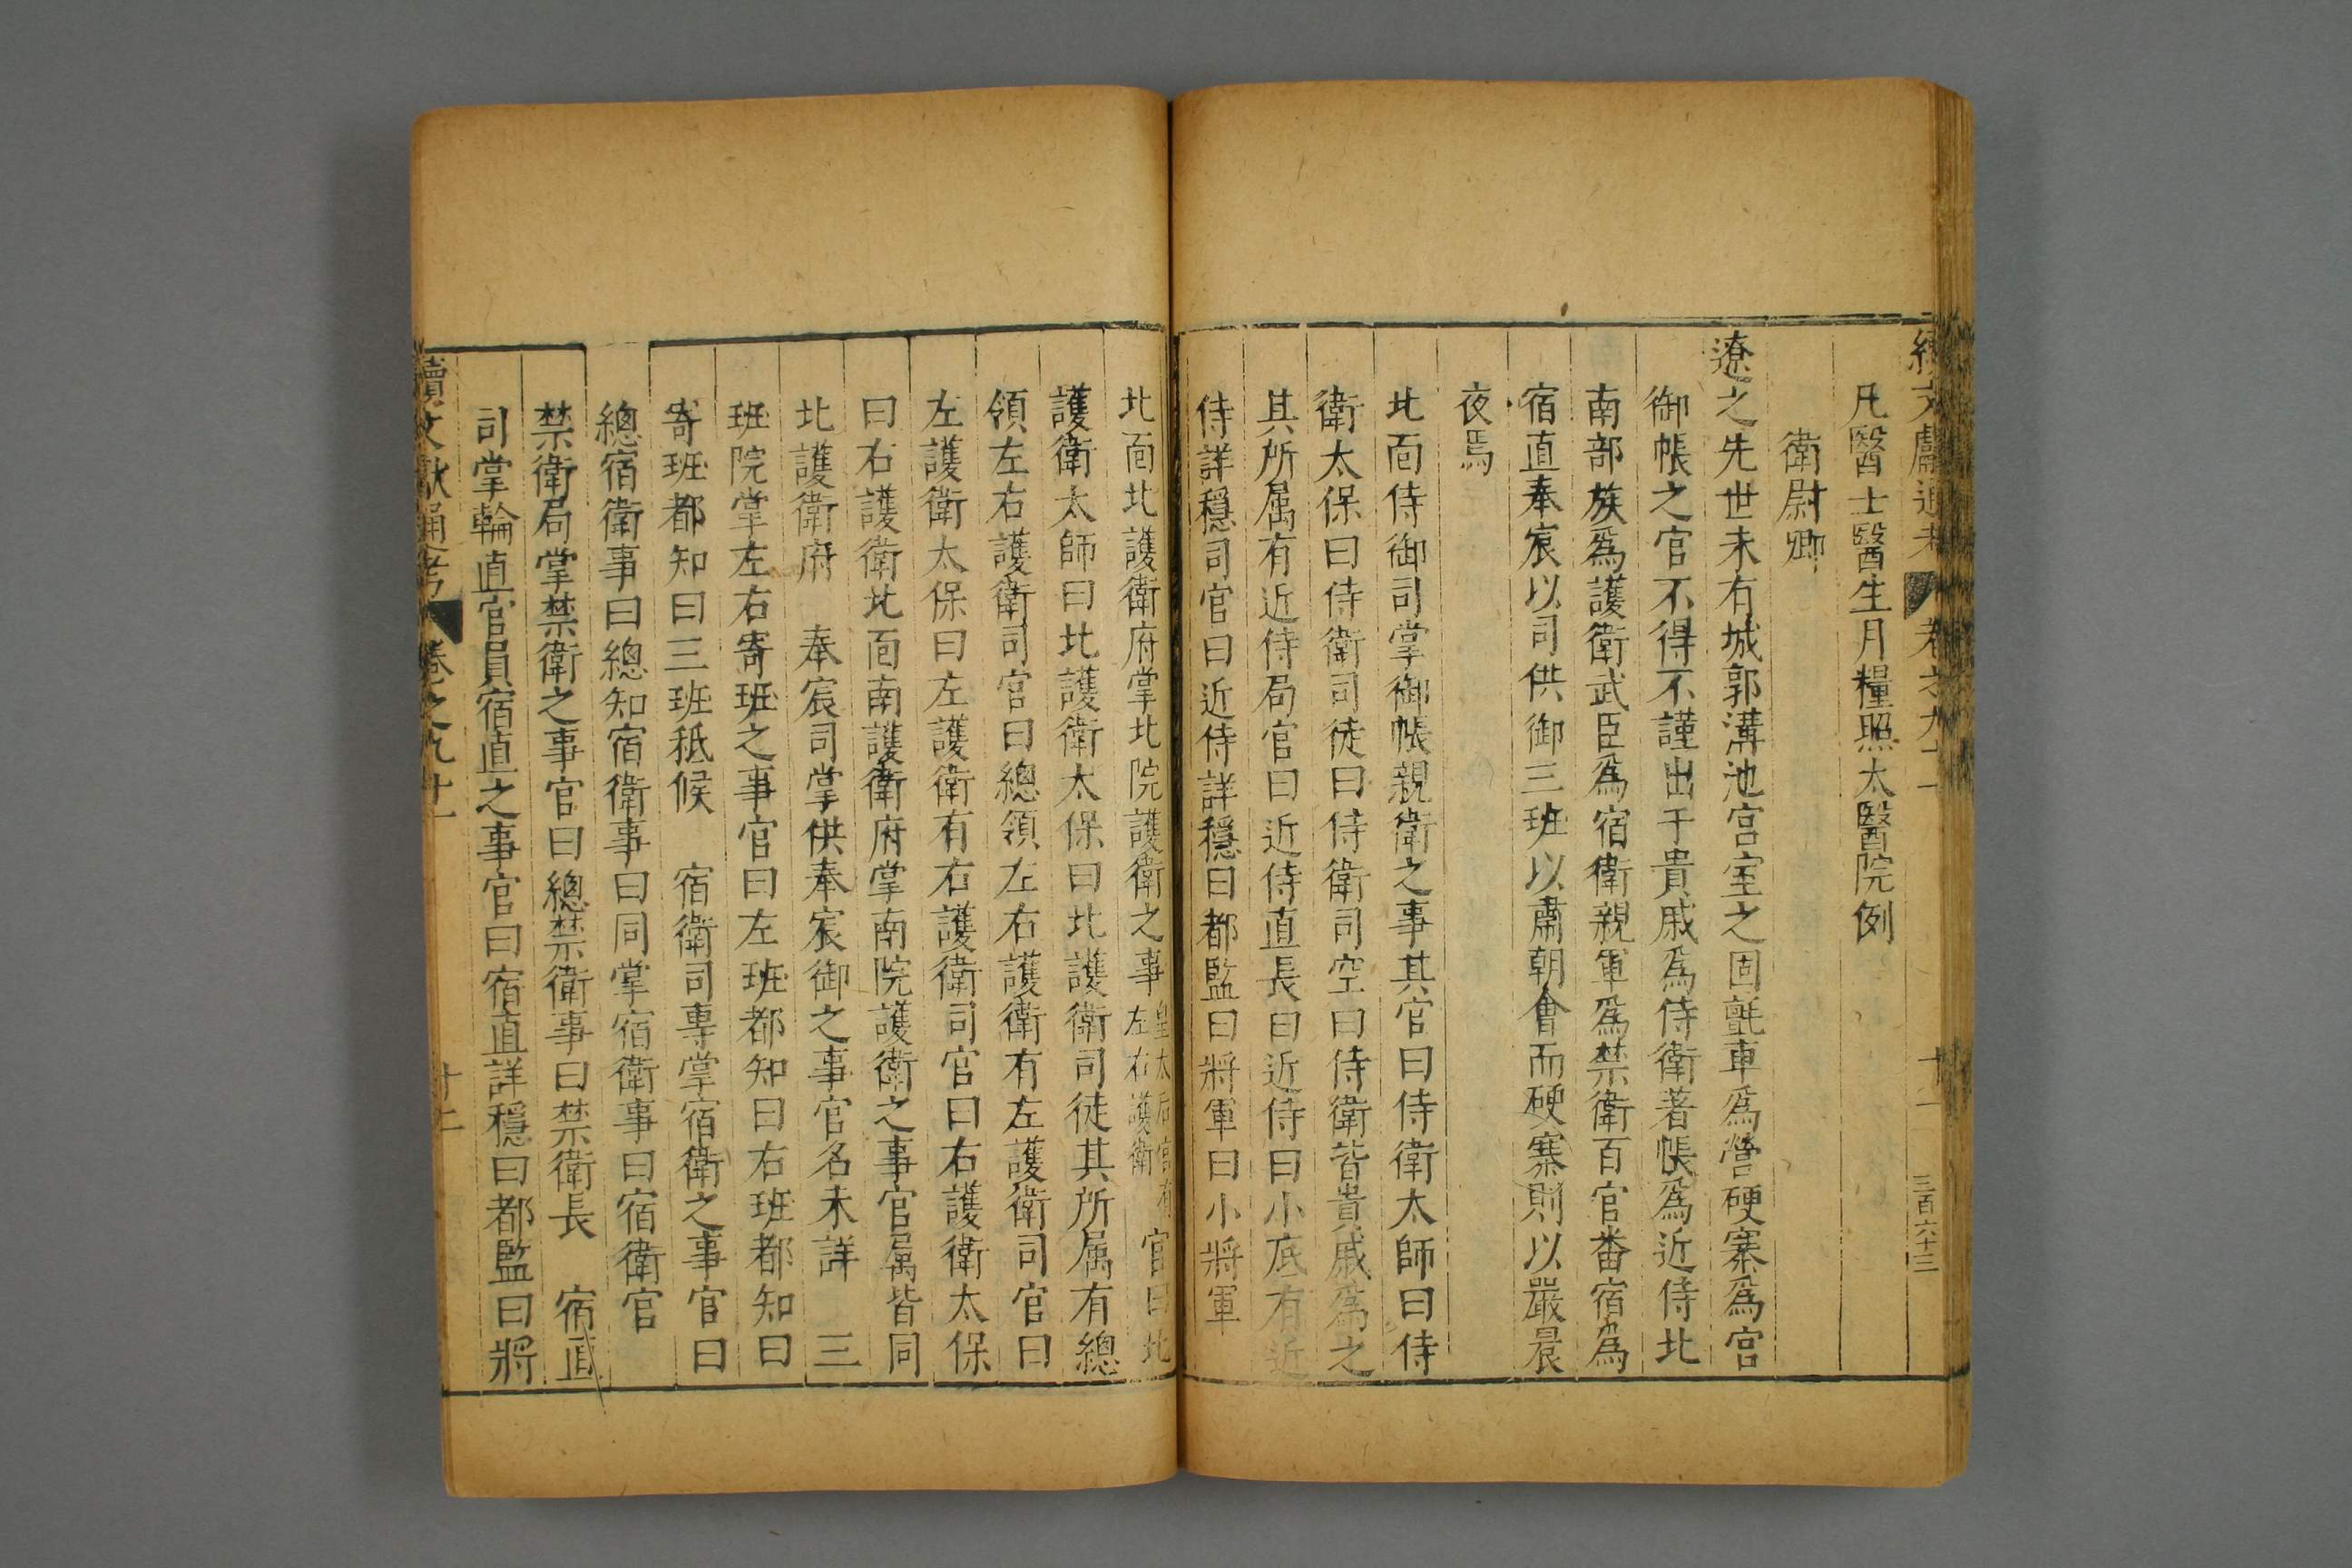 文獻通考 卷之九十一 十一 三百六十三
凡醫士醫生月糧照太醫院例
衛尉卿
遼之先世未有城郭溝池宮室之固氈車爲營硬寨爲宮
御帳之官不得不謹出于貴戚爲侍衛著帳爲近侍北
南部族爲護衛武臣爲宿衛親軍爲禁衛百官番宿爲
宿直奉宸以司供御三班以肅朝會而硬寨則以嚴晨
夜焉
北面侍御司掌御帳親衛之事其官曰侍衛太師曰侍
衛太保曰侍衛司徒曰侍衛司空曰侍衛皆貴戚爲之
其所属有近侍局官曰近侍直長曰近侍曰小底有近
侍詳穩司官曰近侍詳穩曰都監曰將軍曰小將軍
北面北護衛府掌北院護衛之事皇太后宮有左右護衛官曰北
護衛太師曰北護衛太保曰北護衛司徒其所属有總
領左右護衛司官曰總領左右護衛有左護衛司官曰
左護衛太保曰左護衛有右護衛司官曰右護衛太保
曰右護衛北面南護衛府掌南院護衛之事官属皆同
北護衛府 奉宸司掌供奉宸御之事官名未詳 三
班院掌左右寄班之事官曰左班都知曰右班都知曰
寄班都知曰三班秪候 宿衛司專掌宿衛之事官曰
總宿衛事曰總知宿衛事曰同掌宿衛事曰宿衛官
禁衛局掌禁衛之事官曰總禁衛事曰禁衛長 宿直
司掌輪直官員宿直之事官曰宿直詳穩曰都監曰將
續文獻通考 卷之九十一 十二